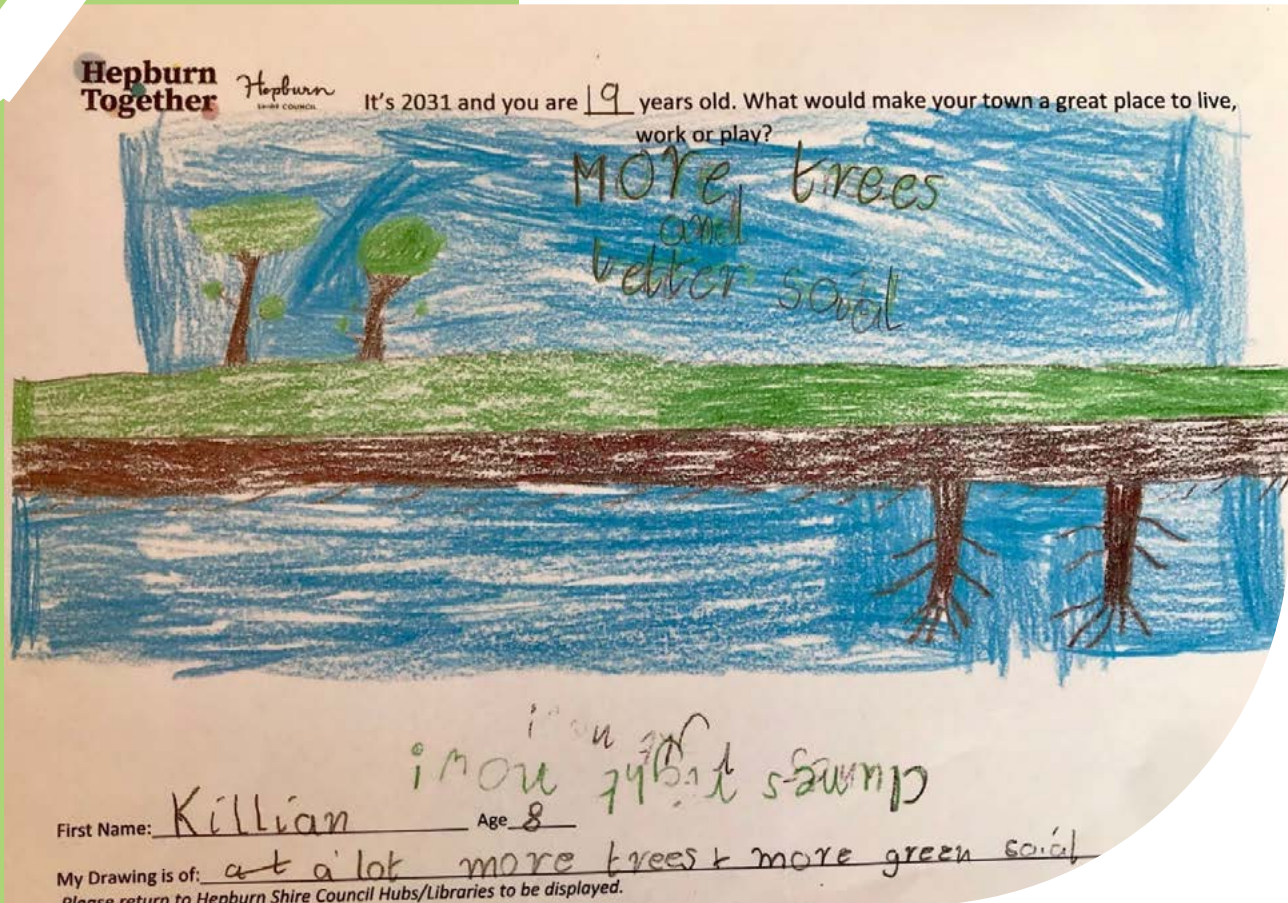 Hepburn
Together
Hepburn
SHIRE COUNCIL
It's 2031 and you are 19 years old. What would make your town a great place to live,
work or play?
More trees
and
better soial
now!
clumes right now!
First Name: Killian Age 8
My Drawing is of: at a lot more trees & more green soial
Please return to Hepburn Shire Council Hubs/Libraries to be displayed.